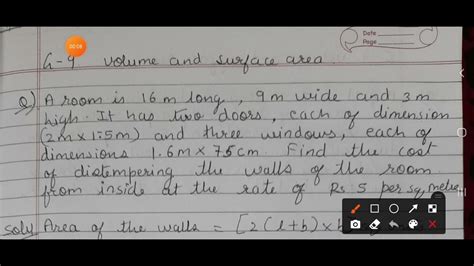 Date
Page
00:08
G-9 volume and surface area
Q) A room is 16 m long, 9 m wide and 3 m
high. It has two doors, each of dimension
(2m x 1.5m) and three windows, each of
dimensions 1.6m x 75cm Find the cost
of distempering the walls of the room
from inside at the rate of Rs 5 per sq. metre
Soly Area of the walls = [2(l+b)xh